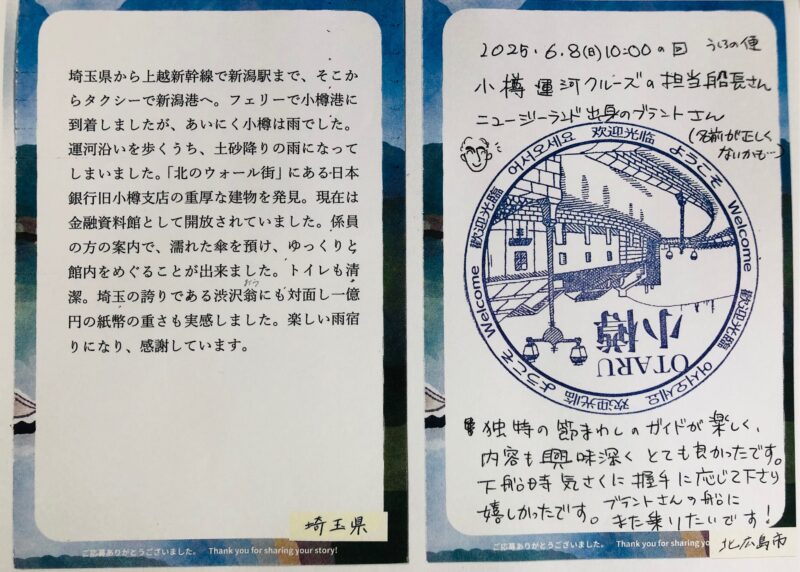 埼玉県から上越新幹線で新潟駅まで、そこか
らタクシーで新潟港へ。フェリーで小樽港に
到着しましたが、あいにく小樽は雨でした。
運河沿いを歩くうち、土砂降りの雨になって
しまいました。「北のウォール街」にある日本
銀行旧小樽支店の重厚な建物を発見。現在は
金融資料館として開放されていました。係員
の方の案内で、濡れた傘を預け、ゆっくりと
館内をめぐることが出来ました。トイレも清
潔。埼玉の誇りである渋沢翁にも対面し一億
円の紙幣の重さも実感しました。楽しい雨宿
りになり、感謝しています。
埼玉県
ご応募ありがとうございました。 Thank you for sharing your story!
2025.6.8(日)10:00の回 うしろの便
小樽運河クルーズの担当船長さん
ニュージーランド出身のブラントさん
(名前が正しく
ないかも…)
ようこそ Welcome 歓迎光臨 어서오세요 欢迎光临 ようこそ Welcome 歓迎光臨 어서오세요 欢迎光临
小樽
OTARU
独特の節まわしのガイドが楽しく、
内容も興味深くとても良かったです。
下船時気さくに握手に応じて下さり
嬉しかったです。ブラントさんの船に
また乗りたいです!
北広島市
ご応募ありがとうございました。 Thank you for sharing your